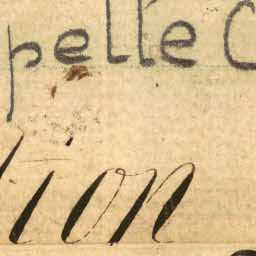 pelle C
tion